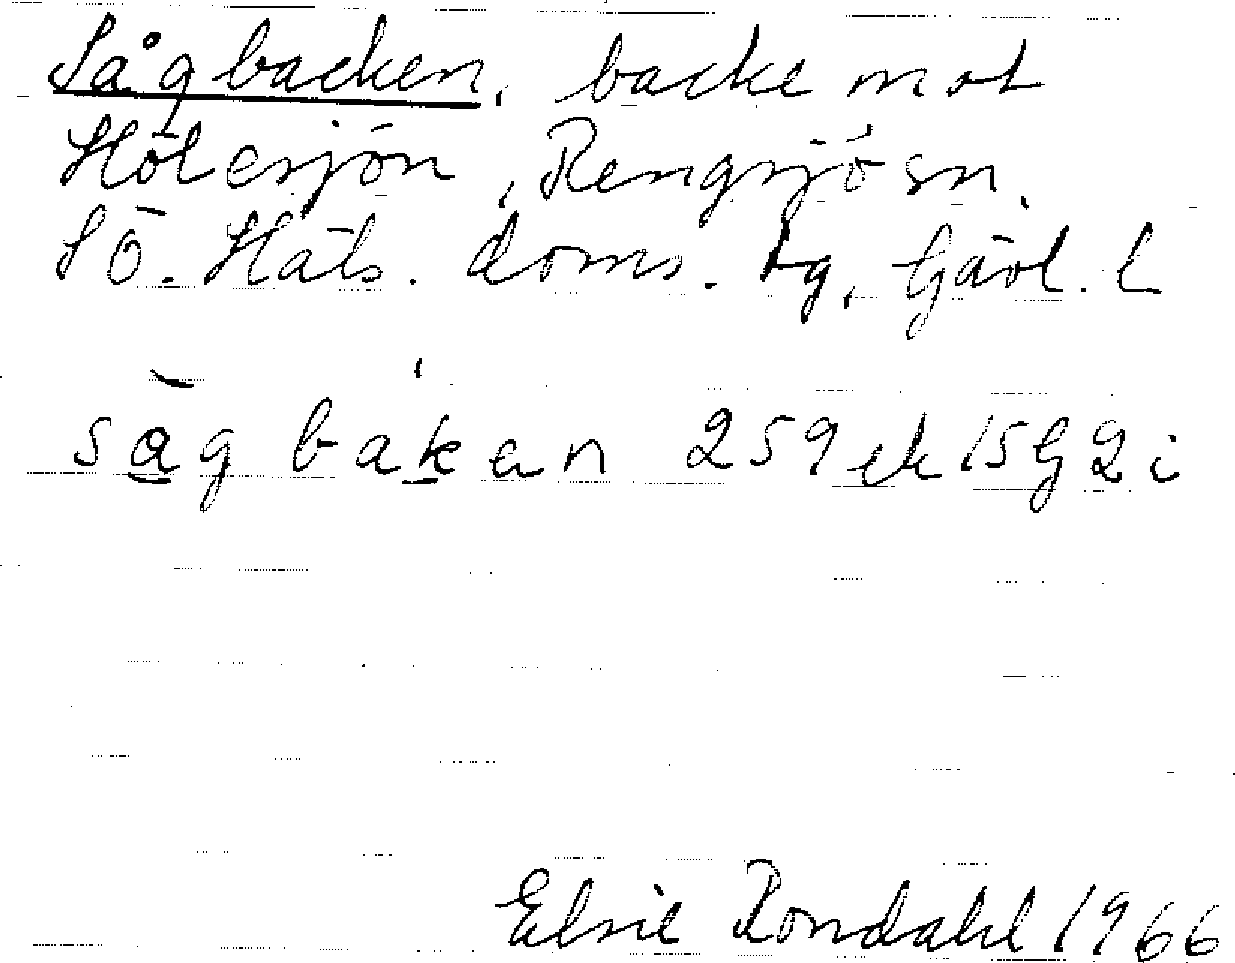 Sågbacken, backe mot
Hölesjön, Rengsjö sn,
SÖ. Häls. doms. tg, Gävl. l
sag bakan 259 ek 15G2i
Elsie Rondahl 1966